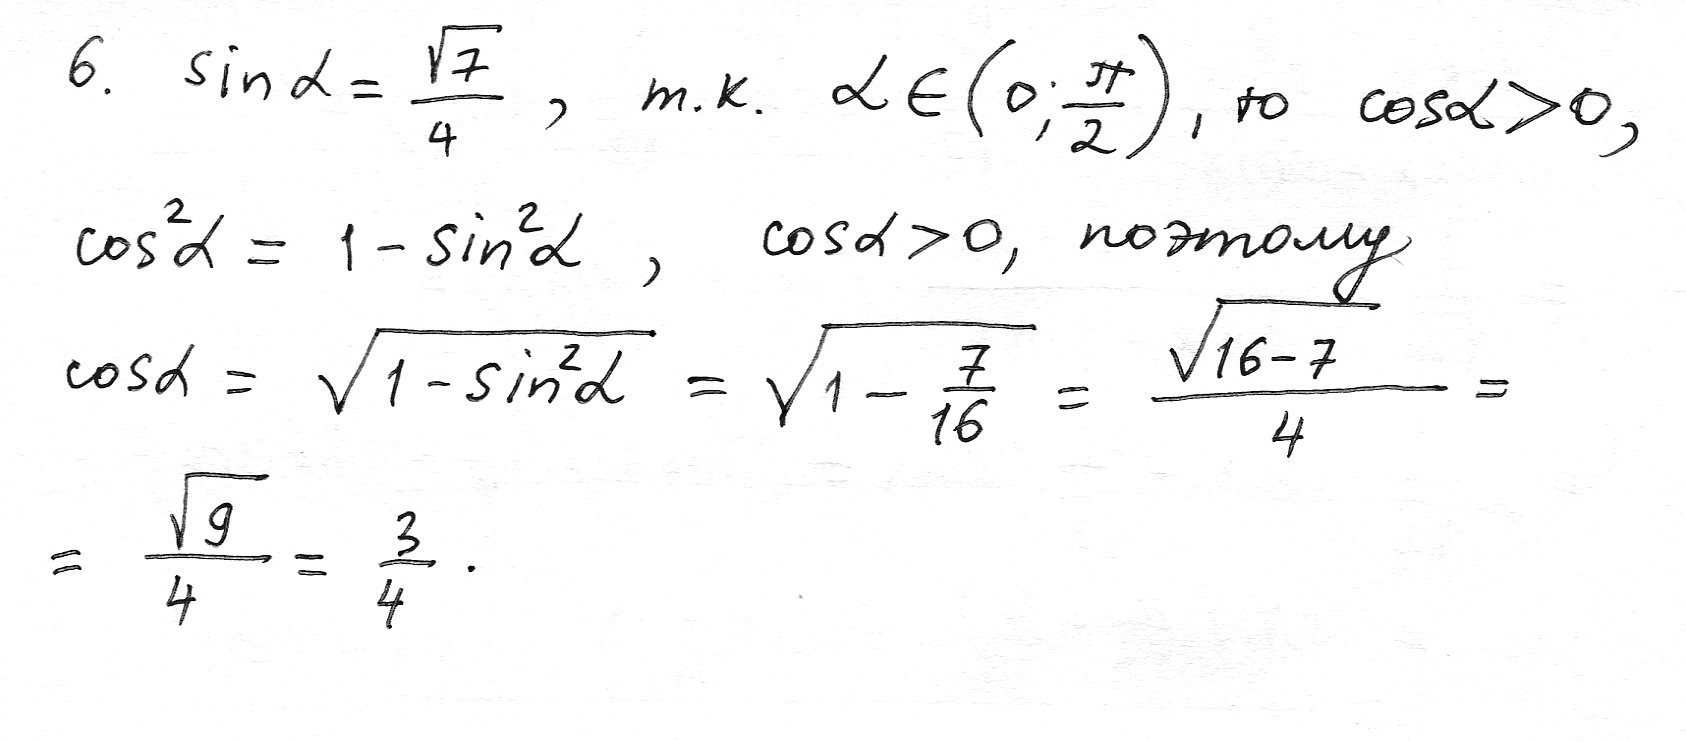 6. sin α = √7/4, т.к. α ∈ (0; π/2), то cos α > 0,
cos²α = 1 - sin²α, cos α > 0, поэтому
cos α = √(1 - sin²α) = √(1 - 7/16) = √(16-7)/4 =
= √9/4 = 3/4.